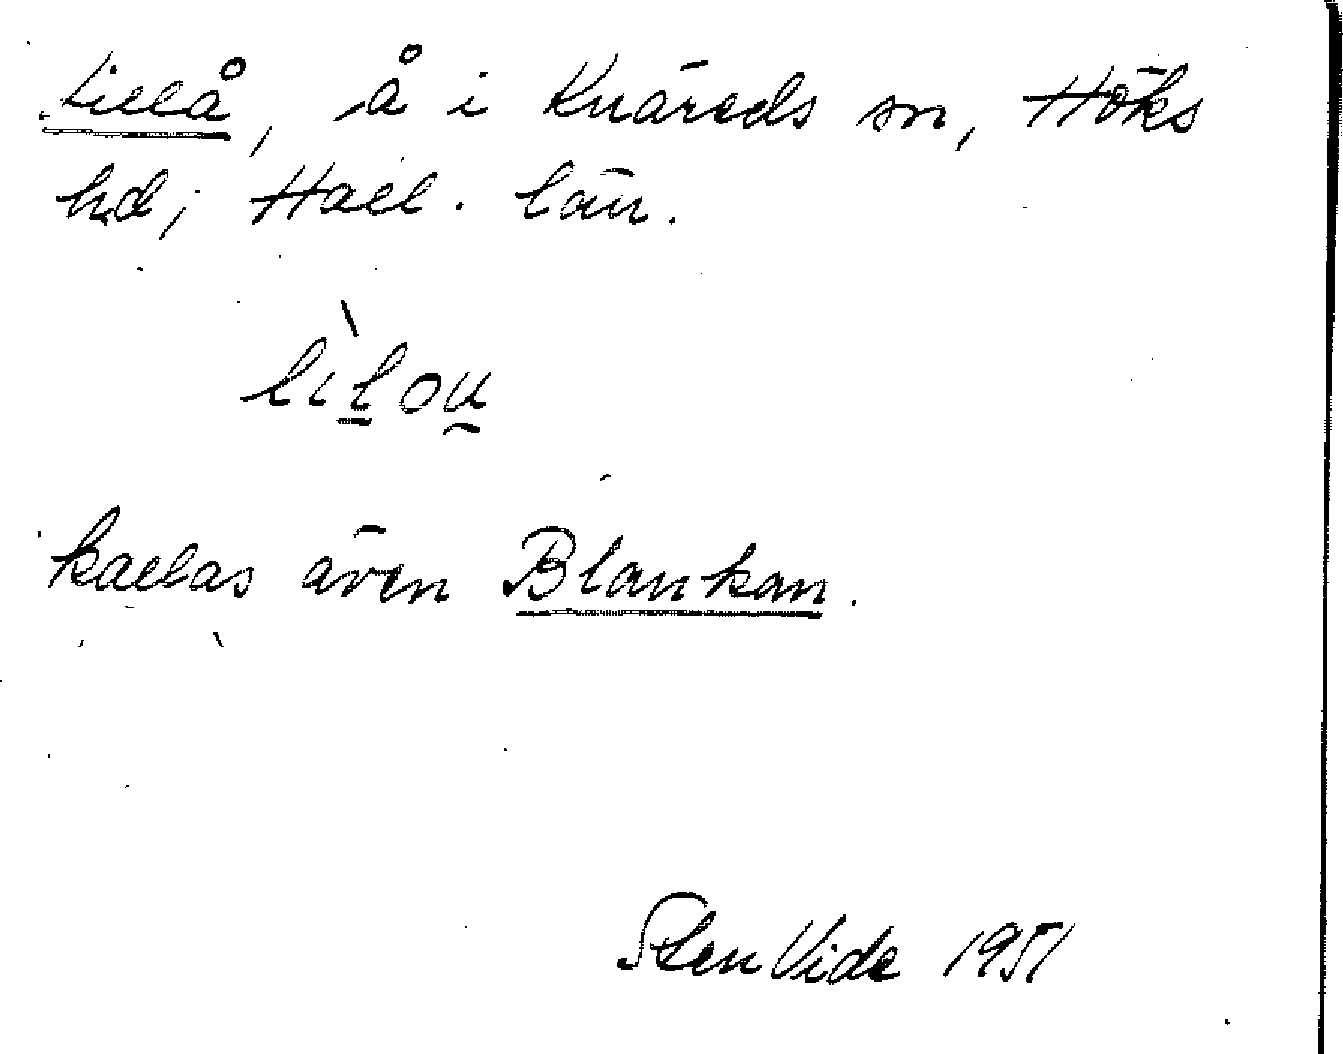 Lillå, å i Knäreds sn, Höks
hd, Hall. län.
lìl̲ou̯
kallas även Blankan.
Sten Vide 1951